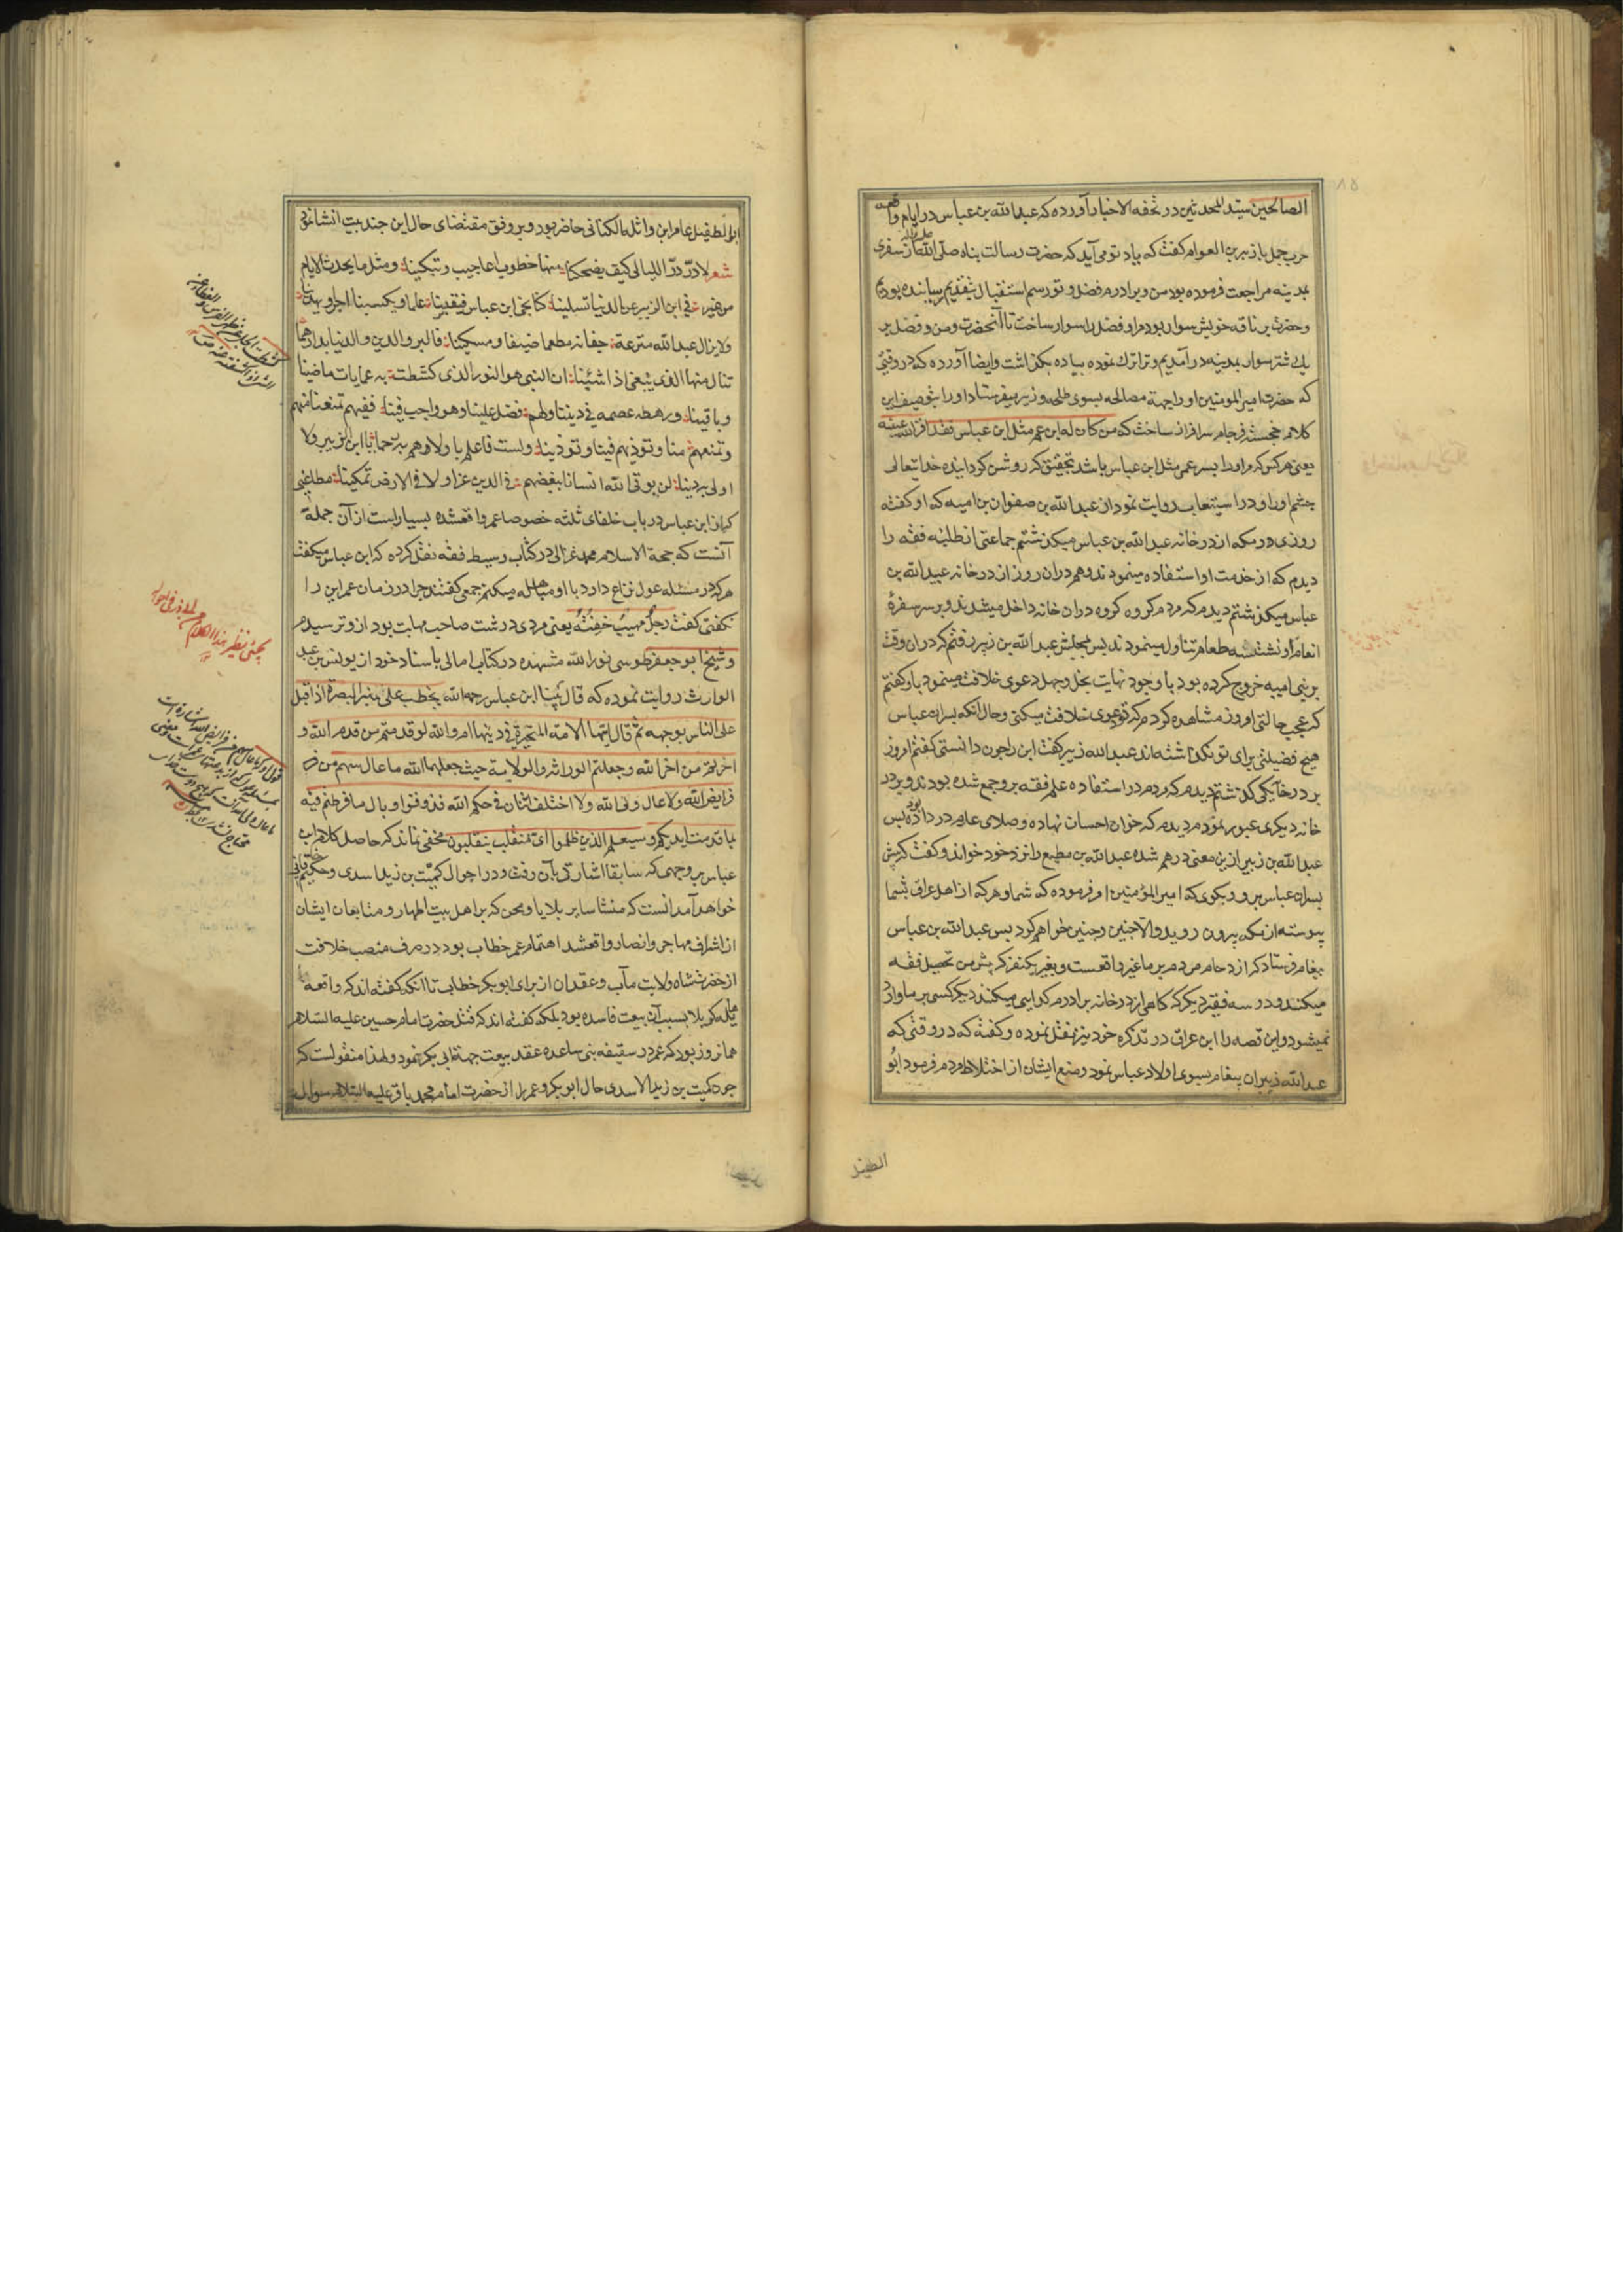 الصالحین سید المحدثین در تحفه الاحبا آورده که عبدالله بن عباس در ایام واقعه
حرب جمل با زبیر بن العوام کفت که بیاد تو می آید که حضرت رسالت پناه صلی الله علیه وآله از سفری
بمدینه مراجعت فرموده بود من و برادرم فضل و تو رسم استقبال بتقدیم رسانیده بودیم
و حضرت بر ناقه خویش سوار بود مرا و فضل را سوار ساخت تا آنحضرت و من و فضل بر
یک شتر سوار بمدینه در آمدیم و ترا ترک نموده پیاده بگذاشت و ایضا آورده که در وقتی
که حضرت امیر المومنین او را جهة مصالحه بسوی طلحه و زبیر میفرستاد او را بتوصیف این
کلام خجسته فرجام سرافراز ساخت که من کان له ابن عم مثل ابن عباس فقد اقر الله عینه
یعنی هر کس که مر او را پسر عمی مثل ابن عباس باشد بتحقیق که روشن کردانیده خدایتعالی
چشم او را و در استیعاب روایت نمود از عبدالله بن صفوان بن امیه که او کفته
روزی در مکه از در خانه عبدالله بن عباس میکذشتم جماعتی از طلبه فقه را
دیدم که از خدمت او استفاده مینمودند و هم در ان روز از در خانه عبیدالله بن
عباس میکذشتم دیدم که مردم کروه کروه در ان خانه داخل میشدند و بر سر سفرهٔ
انعام او نشسته طعام تناول مینمودند پس بمجلس عبدالله بن زبیر رفتم که در ان وقت
بر بنی امیه خروج کرده بود با وجود نهایت بخل و جهل دعوی خلافت مینمود باو کفتم
که عجب حالتی امروز مشاهده کردم که تو دعوی خلافت میکنی و حال انکه پسران عباس
هیچ فضیلتی برای تو نکذاشته اند عبدالله زبیر کفت این را چون دانستی کفتم امروز
بر در خانه یکی کذشتم دیدم که مردم در استفاده علم فقه برو جمع شده بودند و بر در
خانه دیکری عبور نمودم دیدم که خوان احسان نهاده و صلای عام در داده بود پس
عبدالله بن زبیر ازین معنی درهم شده عبدالله بن مطیع را نزد خود خواند و کفت که پیش
پسران عباس برو و بکوی که امیر المؤمنین او فرموده که شما و هر که از اهل عراق بشما
پیوسته از مکه بیرون روید والا چنین و چنین خواهم کرد پس عبدالله بن عباس
پیغام فرستاد که ازدحام مردم بر ما غیر واقعست و بغیر یکنفر که پیش من تحصیل فقه
میکند و دو سه فقیر دیکر که کاهی از در خانه برادرم کدایی میکنند دیکر کسی بر ما وارد
نمیشود و این قصه را ابن عراق در تذکره خود نیز نقل نموده و کفته که در وقتی که
عبدالله زبیر ان پیغام بسوی اولاد عباس نمود و منع ایشان از اختلاط مردم فرمود ابو
الطفیل
ابو الطفیل عامر ابن واثله الکنانی حاضر بود و بر وفق مقتضای حال این چند بیت انشا نمود
شعر لا در در اللیالی کیف یضحکنا منها خطوب اعاجیب و تبکینا و مثل ما یحدث الایام
من غیر فی ابن الزبیر عن الدنیا تسلینا کنا نجی ابن عباس فیفتینا علما و یکسبنا اجرا و یهدینا
ولا یزال عبدالله مترعة جفانه مطعما ضیفا و مسکینا فالبر والدین والدنیا بدارهما
تنال منها الذی یبغی اذا شئنا ان النبی هو النور الذی کشطت به عمایات ماضینا
و باقینا و رهطه عصمه فی دیننا و لهم فضل علینا و هو واجب فینا ففیهم تمنعنا منهم
و تمنعهم منا و تؤذیهم فینا و تؤذینا و لست فاعلم باولاهم به رحما یا ابن الزبیر ولا
اولی به دینا لن یوتی الله انسانا ببغضهم فی الدین عزا ولا فی الارض تمکینا مطاعنی
که از ابن عباس در باب خلفای ثلثه خصوصا عمر واقعشده بسیار است از آن جمله
آنست که حجة الاسلام محمد غزالی در کتاب وسیط فقه نقل کرده که ابن عباس میکفت
هر که در مسئله عول نزاع دارد با او مباهله میکنم جمعی کفتند چرا در زمان عمر این را
نکفتی کفت رجل مهیب خفته یعنی مردی درشت صاحب مهابت بود ازو ترسیدم
و شیخ ابو جعفر طوسی نور الله مشهده در کتاب امالی باسناد خود از یونس بن عبد
الوارث روایت نموده که قال بینا ابن عباس رحمه الله یخطب علی منبر البصرة اذ اقبل
علی الناس بوجهه ثم قال ایتها الامة المتحیرة فی دینها ام والله لو قدمتم من قدم الله و
اخرتم من اخر الله وجعلتم الوراثة والولایة حیث جعلهما الله ما عال سهم من فر
فرایض الله ولا عال ولی الله ولا اختلف اثنان فی حکم الله فذوقوا وبال ما فرطتم فیه
بما قدمت ایدیکم وسیعلم الذین ظلموا ای منقلب ینقلبون مخفی نماند که حاصل کلام ابن
عباس بر وجهی که سابقا اشارتی بآن رفت و در احوال کمیت بن زید اسدی و حکیم خاقانی
خواهد آمد انست که منشا سایر بلایا و محن که بر اهل بیت اطهار و متابعان ایشان
از اشراف مهاجر و انصار واقعشد اهتمام عمر خطاب بود در صرف منصب خلافت
از حضرت شاه ولایت مآب و عقد ان از برای ابو بکر خطایی تا انکه کفته اند که واقعهٔ
هایله کربلا بسبب آن بیعت فاسده بود بلکه کفته اند که قتل حضرت امام حسین علیه السلام
همانروز بود که عمر در سقیفه بنی ساعده عقد بیعت جهة ابی بکر نمود و لهذا منقولست که
چون کمیت بن زید الاسدی حال ابو بکر و عمر را از حضرت امام محمد باقر علیه السلام سوال